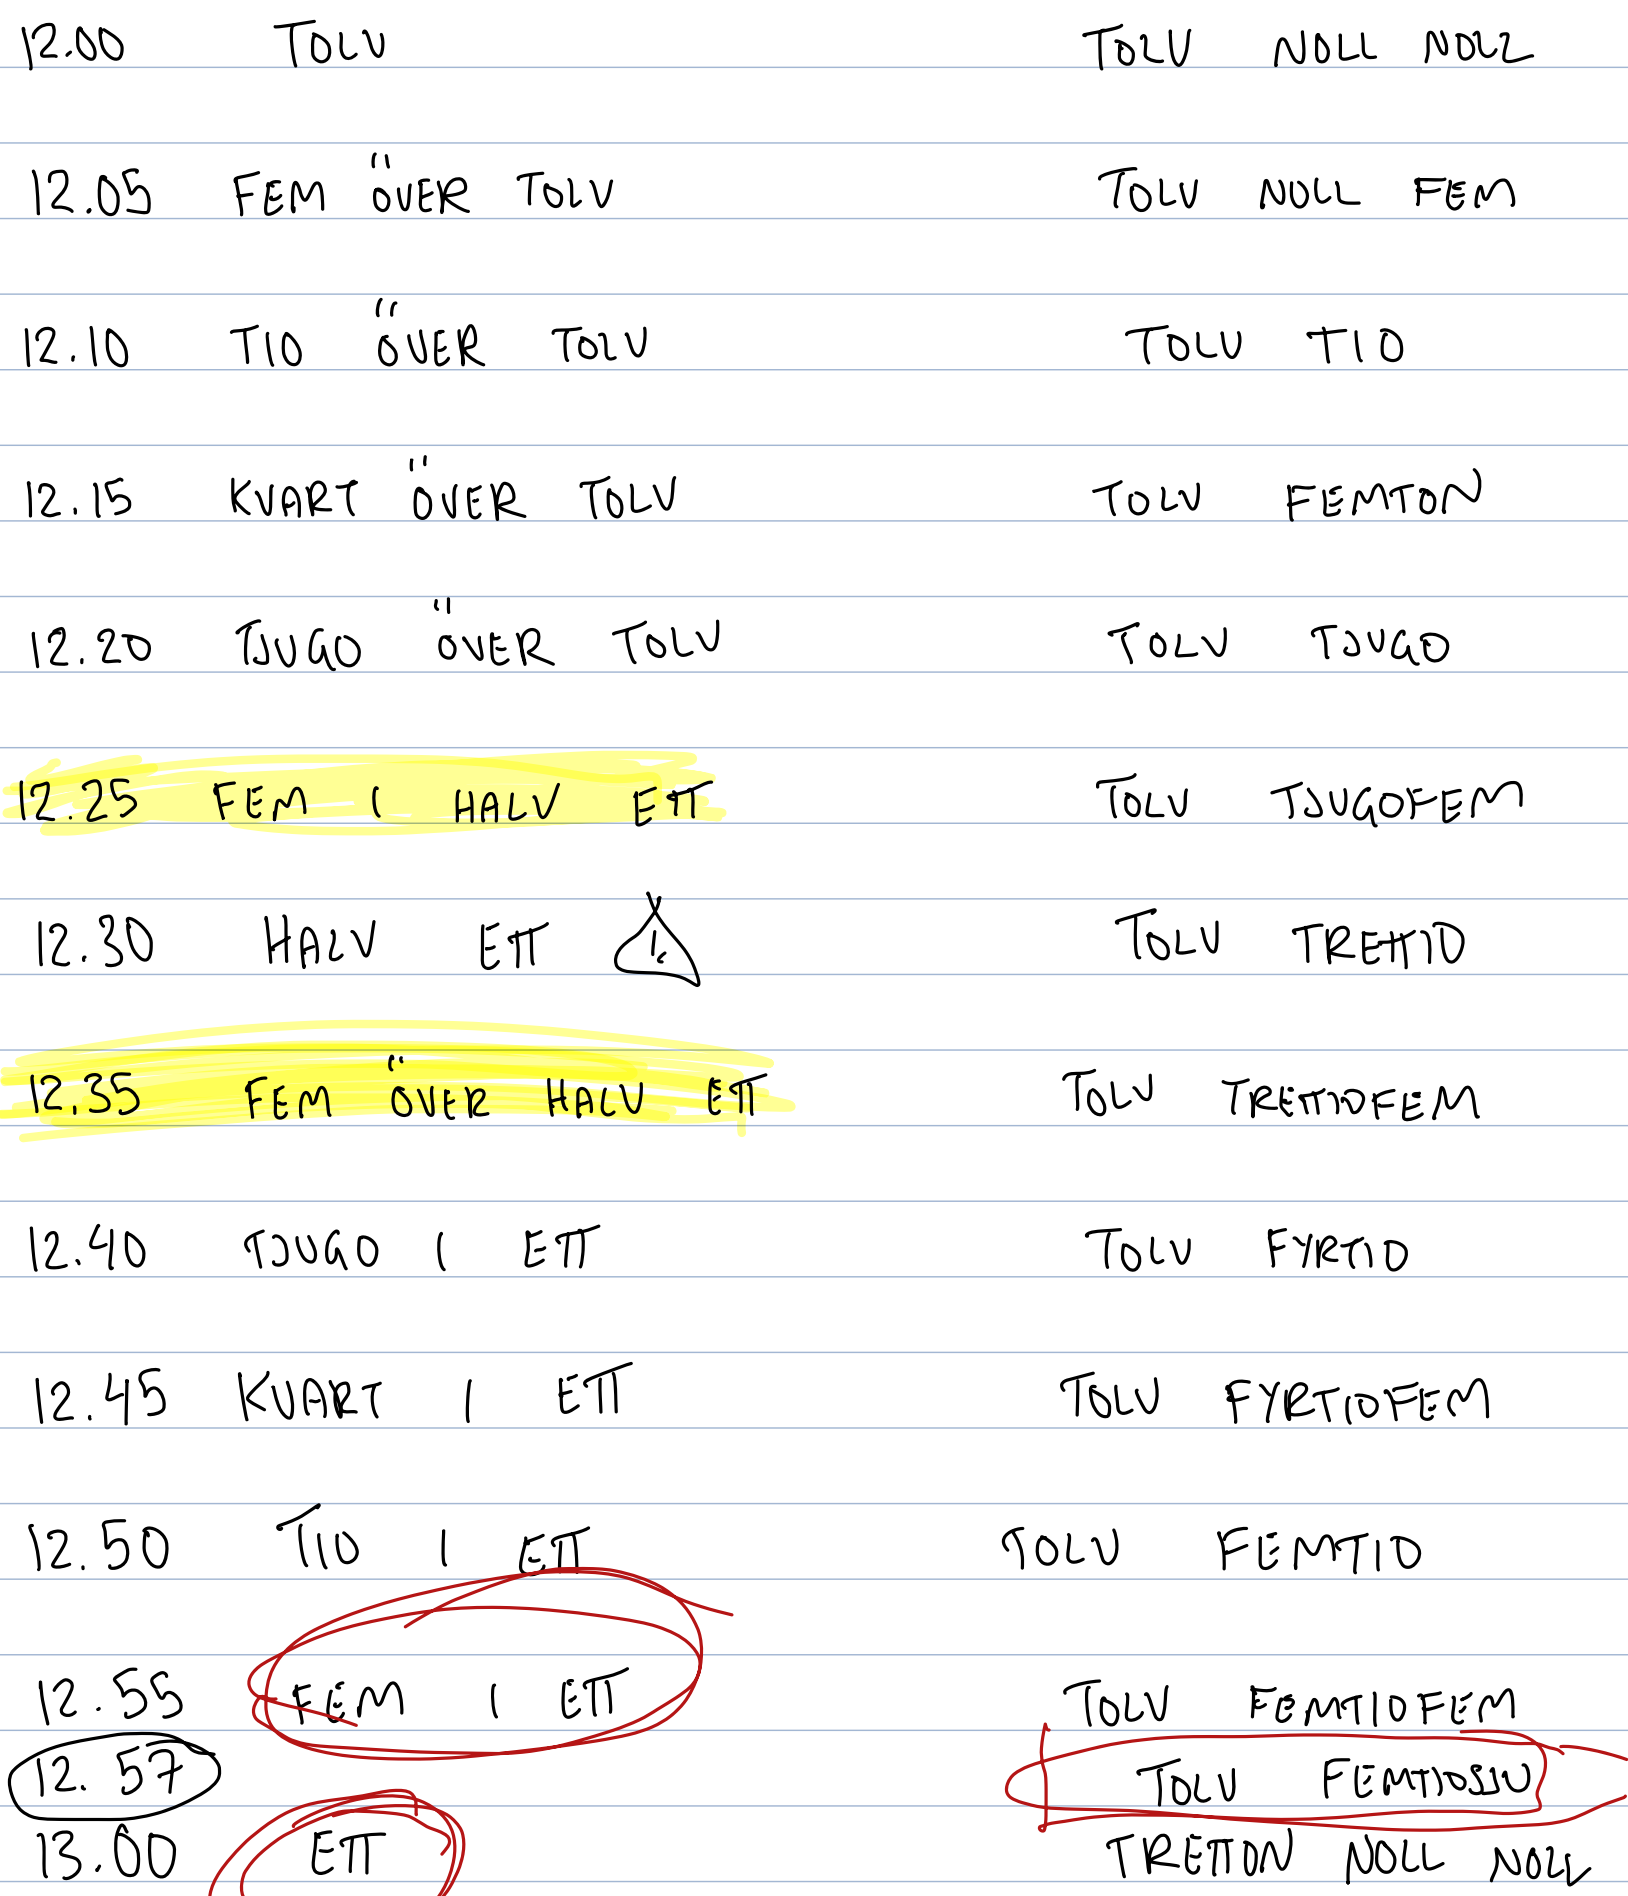 12.00 TOLV TOLV NOLL NOLL
12.05 FEM ÖVER TOLV TOLV NOLL FEM
12.10 TIO ÖVER TOLV TOLV TIO
12.15 KVART ÖVER TOLV TOLV FEMTON
12.20 TJUGO ÖVER TOLV TOLV TJUGO
12.25 FEM I HALV ETT TOLV TJUGOFEM
12.30 HALV ETT ! TOLV TRETTIO
12.35 FEM ÖVER HALV ETT TOLV TRETTIOFEM
12.40 TJUGO I ETT TOLV FYRTIO
12.45 KVART I ETT TOLV FYRTIOFEM
12.50 TIO I ETT TOLV FEMTIO
12.55 FEM I ETT TOLV FEMTIOFEM
12.57 TOLV FEMTIOSJU
13.00 ETT TRETTON NOLL NOLL